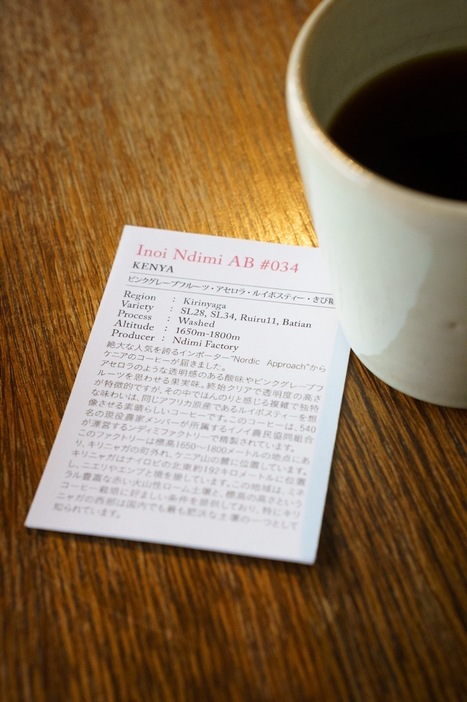 Inoi Ndimi AB #034
KENYA
ピンクグレープフルーツ・アセロラ・ルイボスティー・きび
Region : Kirinyaga
Variety : SL28, SL34, Ruiru11, Batian
Process : Washed
Altitude : 1650m-1800m
Producer : Ndimi Factory
絶大な人気を誇るインポーター"Nordic Approach"から
ケニアのコーヒーが届きました。
アセロラのような透明感のある酸味やピンクグレープフ
ルーツを思わせる果実味。終始クリアで透明度の高さ
が特徴的ですが、その中でほんのりと感じる複雑で独特
な味わいは、同じアフリカ原産であるルイボスティーを想
像させる素晴らしいコーヒーです。このコーヒーは、540
名の現役農家メンバーが所属するイノイ農民協同組合
が運営するンディミファクトリーで精製されています。
このファクトリーは標高1650〜1800メートルの地点にあ
り、キリニャガの町外れ、ケニア山の麓に位置しています。
キリニャガはナイロビの北東約192キロメートルに位置
し、ニエリやエンブと境を接しています。この地域は、ミネ
ラル豊富な赤い火山性ローム土壌と、標高の高さという
コーヒー栽培に好ましい条件を提供しており、特にキリ
ニャガの西部は国内でも最も肥沃な土壌の一つとして
知られています。